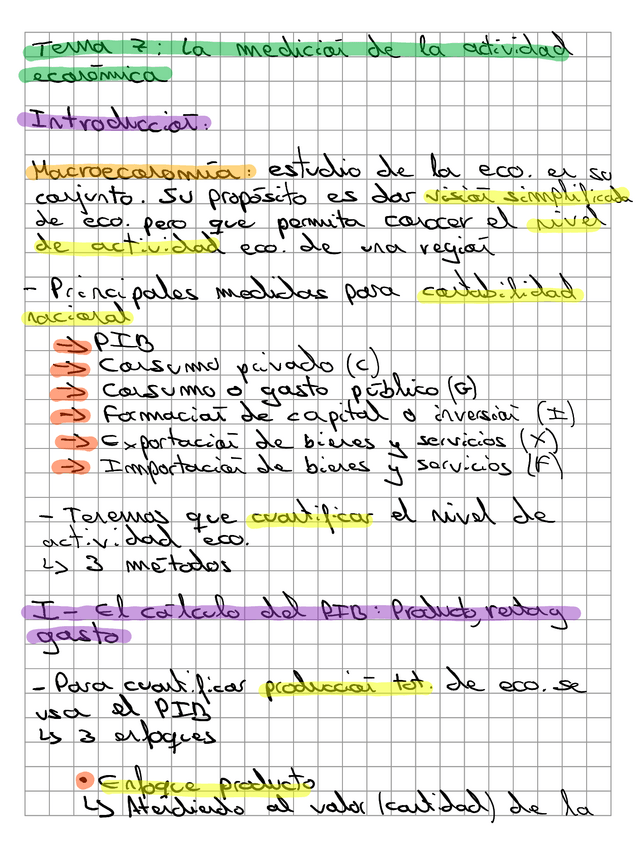 Tema 7: La medición de la actividad
económica
Introducción:
Macroeconomía: estudio de la eco. en su
conjunto. Su propósito es dar visión simplificada
de eco. pero que permita conocer el nivel
de actividad eco. de una región
- Principales medidas para contabilidad
nacional
→ PIB
→ Consumo privado (C)
→ Consumo o gasto público (G)
→ Formación de capital o inversión (I)
→ Exportación de bienes y servicios (X)
→ Importación de bienes y servicios (F)
- Tenemos que cuantificar el nivel de
actividad eco.
↳ 3 métodos
I - El cálculo del PIB: Producto, renta y
gasto
- Para cuantificar producción tot. de eco. se
usa el PIB
↳ 3 enfoques
• Enfoque producto
↳ Atendiendo al valor (cantidad) de la